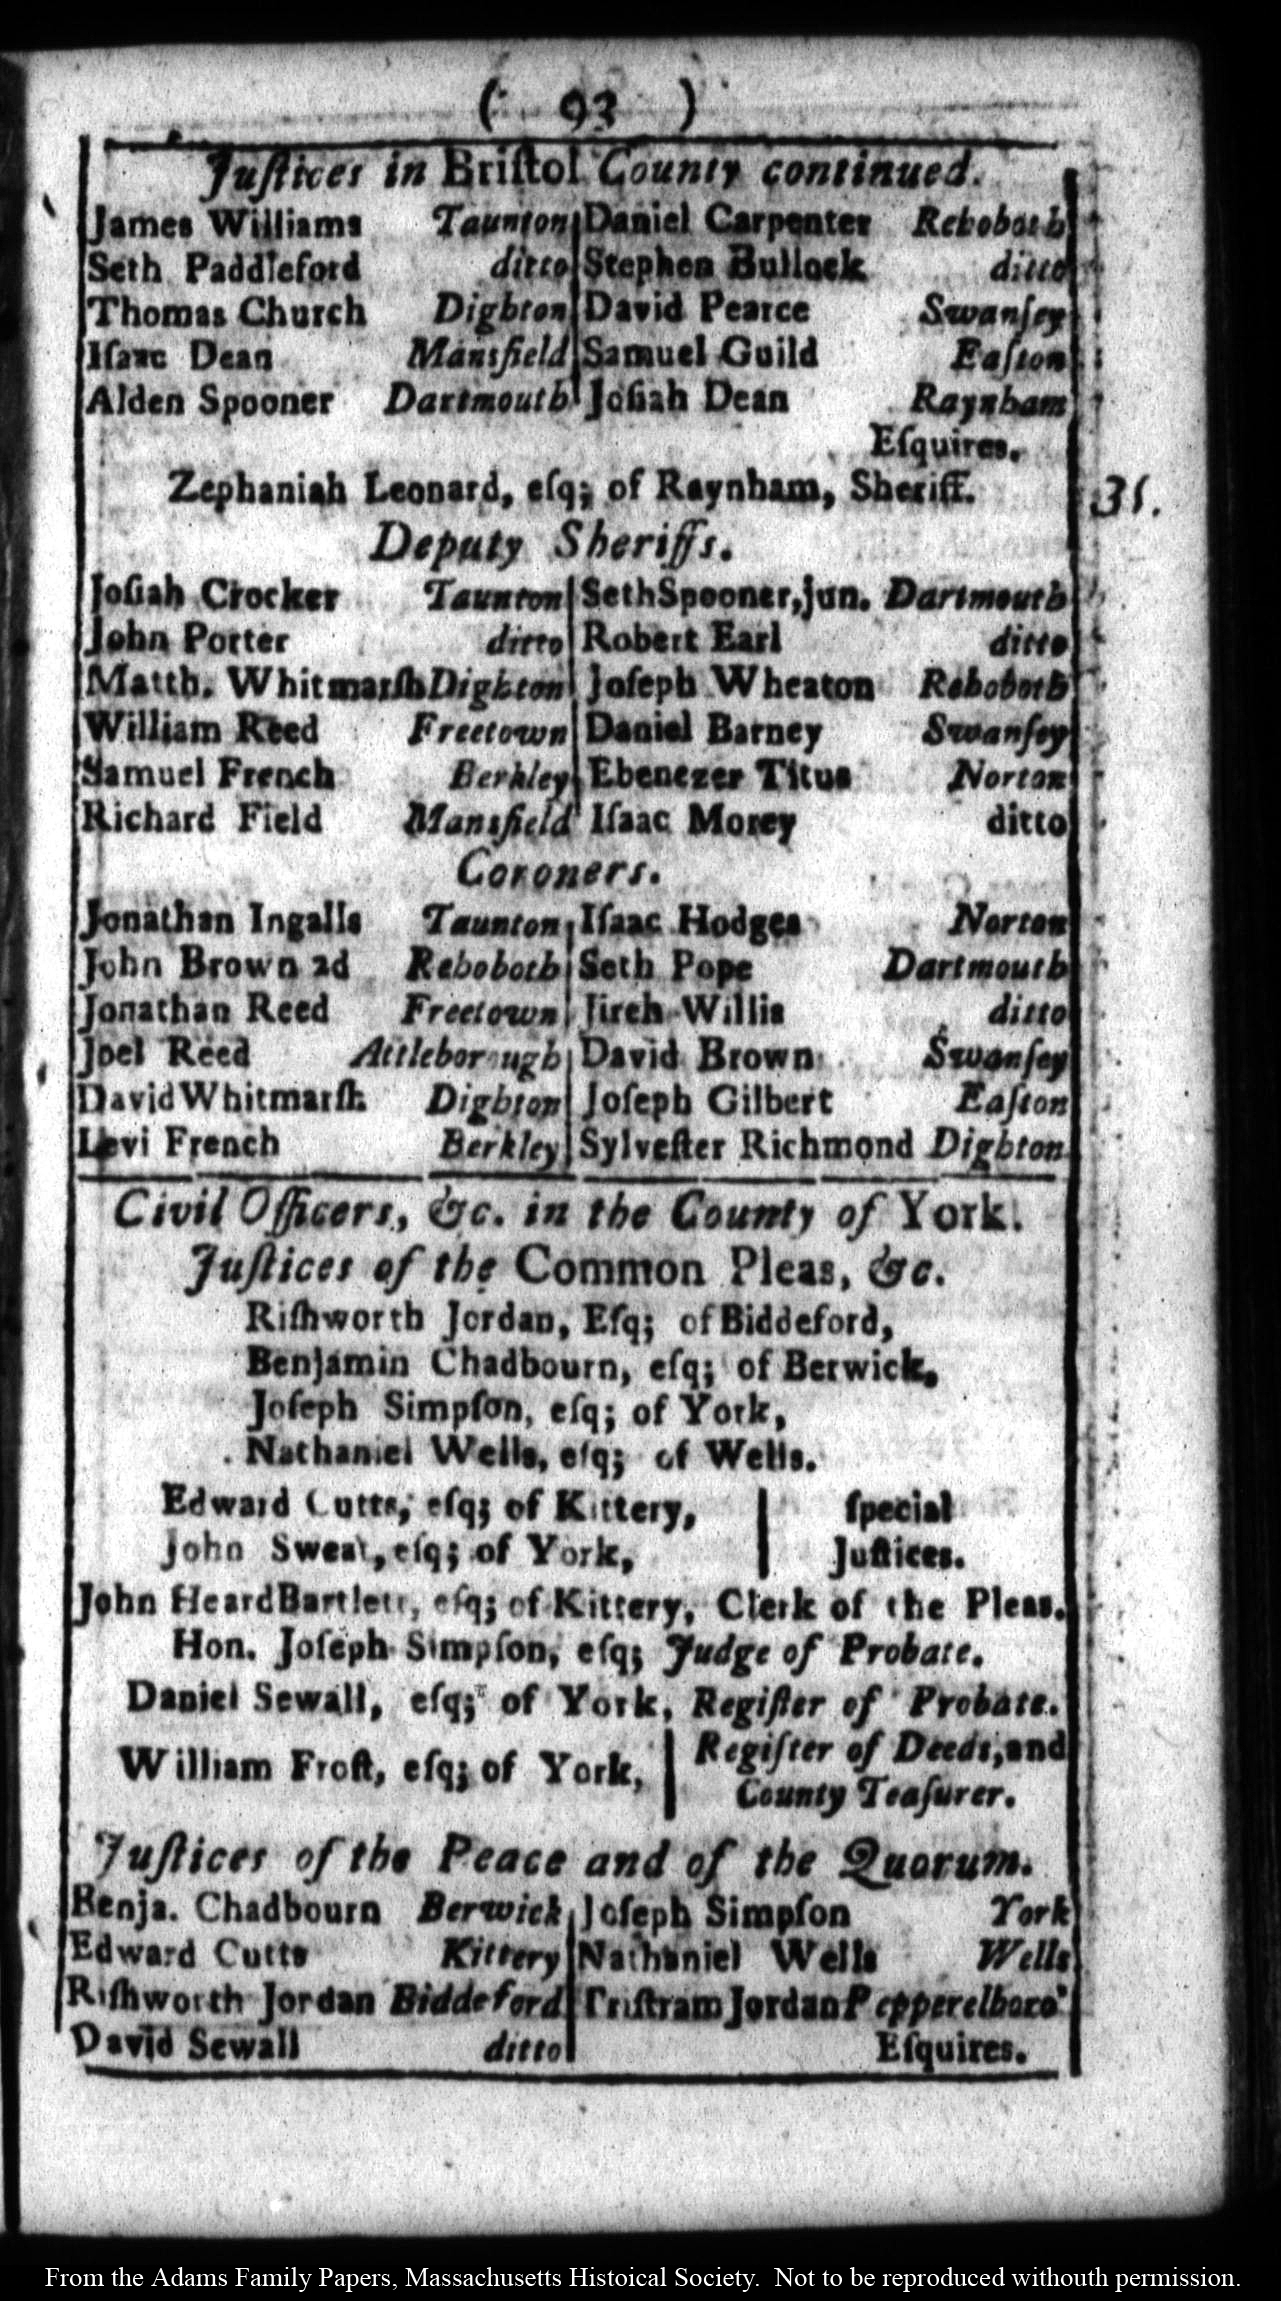 ( 93 )
Juſtices in Briſtol County continued.
James Williams Taunton Daniel Carpenter Rehoboth
Seth Paddleford ditto Stephen Bullock ditto
Thomas Church Dighton David Pearce Swanſey
Iſaac Dean Mansfield Samuel Guild Eaſton
Alden Spooner Dartmouth Joſiah Dean Raynham
Eſquires.
Zephaniah Leonard, eſq; of Raynham, Sheriff.
31.
Deputy Sheriffs.
Joſiah Crocker Taunton Seth Spooner, jun. Dartmouth
John Porter ditto Robert Earl ditto
Matth. Whitmarſh Dighton Joſeph Wheaton Rehoboth
William Reed Freetown Daniel Barney Swanſey
Samuel French Berkley Ebenezer Titus Norton
Richard Field Mansfield Iſaac Morey ditto
Coroners.
Jonathan Ingalls Taunton Iſaac Hodges Norton
John Brown 2d Rehoboth Seth Pope Dartmouth
Jonathan Reed Freetown Jireh Willis ditto
Joel Reed Attleborough David Brown Swanſey
David Whitmarſh Dighton Joſeph Gilbert Eaſton
Levi French Berkley Sylveſter Richmond Dighton
Civil Officers, &c. in the County of York.
Juſtices of the Common Pleas, &c.
Riſhworth Jordan, Eſq; of Biddeford,
Benjamin Chadbourn, eſq; of Berwick,
Joſeph Simpſon, eſq; of York,
Nathaniel Wells, eſq; of Wells.
Edward Cutts, eſq; of Kittery, | ſpecial
John Sweat, eſq; of York, | Juſtices.
John Heard Bartlett, eſq; of Kittery, Clerk of the Pleas.
Hon. Joſeph Simpſon, eſq; Judge of Probate.
Daniel Sewall, eſq; of York, Regiſter of Probate.
William Froſt, eſq; of York, | Regiſter of Deeds, and
County Teaſurer.
Juſtices of the Peace and of the Quorum.
Benja. Chadbourn Berwick Joſeph Simpſon York
Edward Cutts Kittery Nathaniel Wells Wells
Riſhworth Jordan Biddeford Triſtram Jordan Pepperelboro'
David Sewall ditto Eſquires.
From the Adams Family Papers, Massachusetts Histoical Society. Not to be reproduced withouth permission.